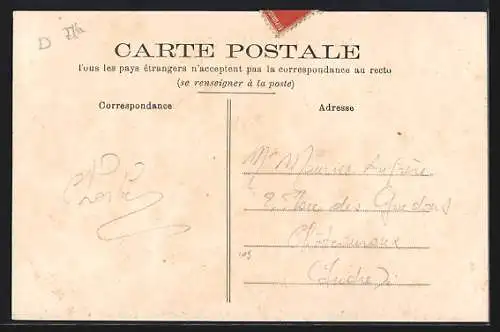 D
CARTE POSTALE
Tous les pays étrangers n'acceptent pas la correspondance au recto
(se renseigner à la poste)
Correspondance
Adresse
Mr Maurice
des
Châteauroux
(Indre)